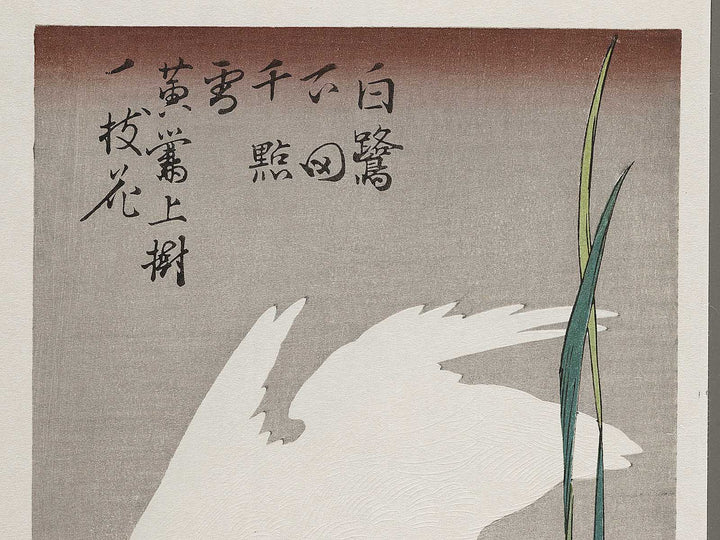 白鷺
下田
千點
雪
黄上樹
一枝花